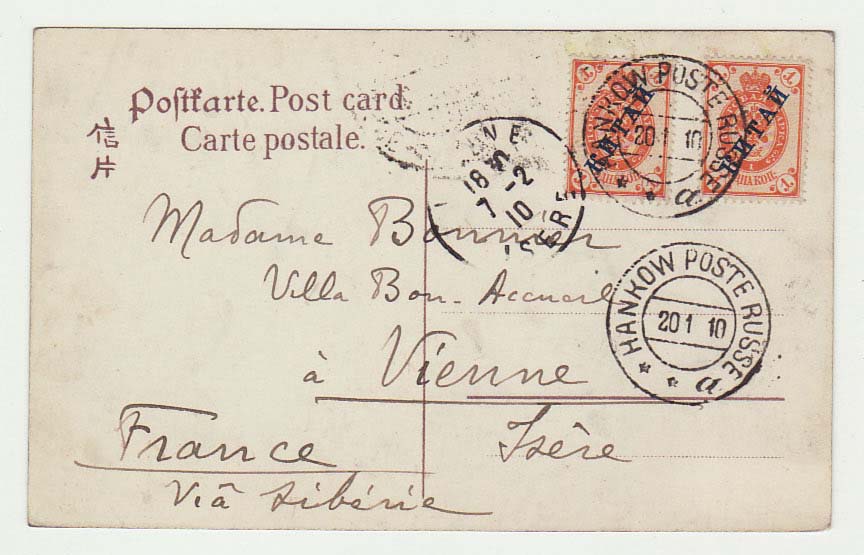 Postkarte. Post card.
Carte postale.
信片
КИТАЙ
1
КИТАЙ
1
1
HANKOW POSTE RUSSE
20 1 10
a
18 35
7 -2
10
ISERE
Madame Bonnier
Villa Bon-Accueil
à Vienne
Isère
France
Viâ Sibérie
HANKOW POSTE RUSSE
20 1 10
a